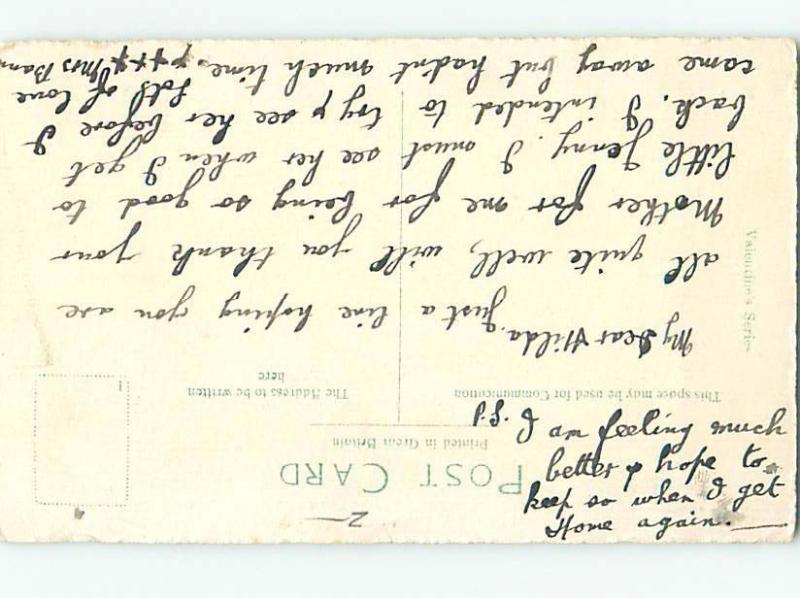 POST CARD
Printed in Great Britain
This space may be used for Communication
The Address to be written
here
Valentine's Series
My Dear Hilda,
Just a line hoping you are
all quite well, will you thank your
Mother for me for being so good to
little Jenny. I must see her when I get
back. I intended to try & see her before I
came away but hadn't much time.
Lots of love
Mrs Bann
P.S. I am feeling much
better & hope to
keep so when I get
Home again.
2